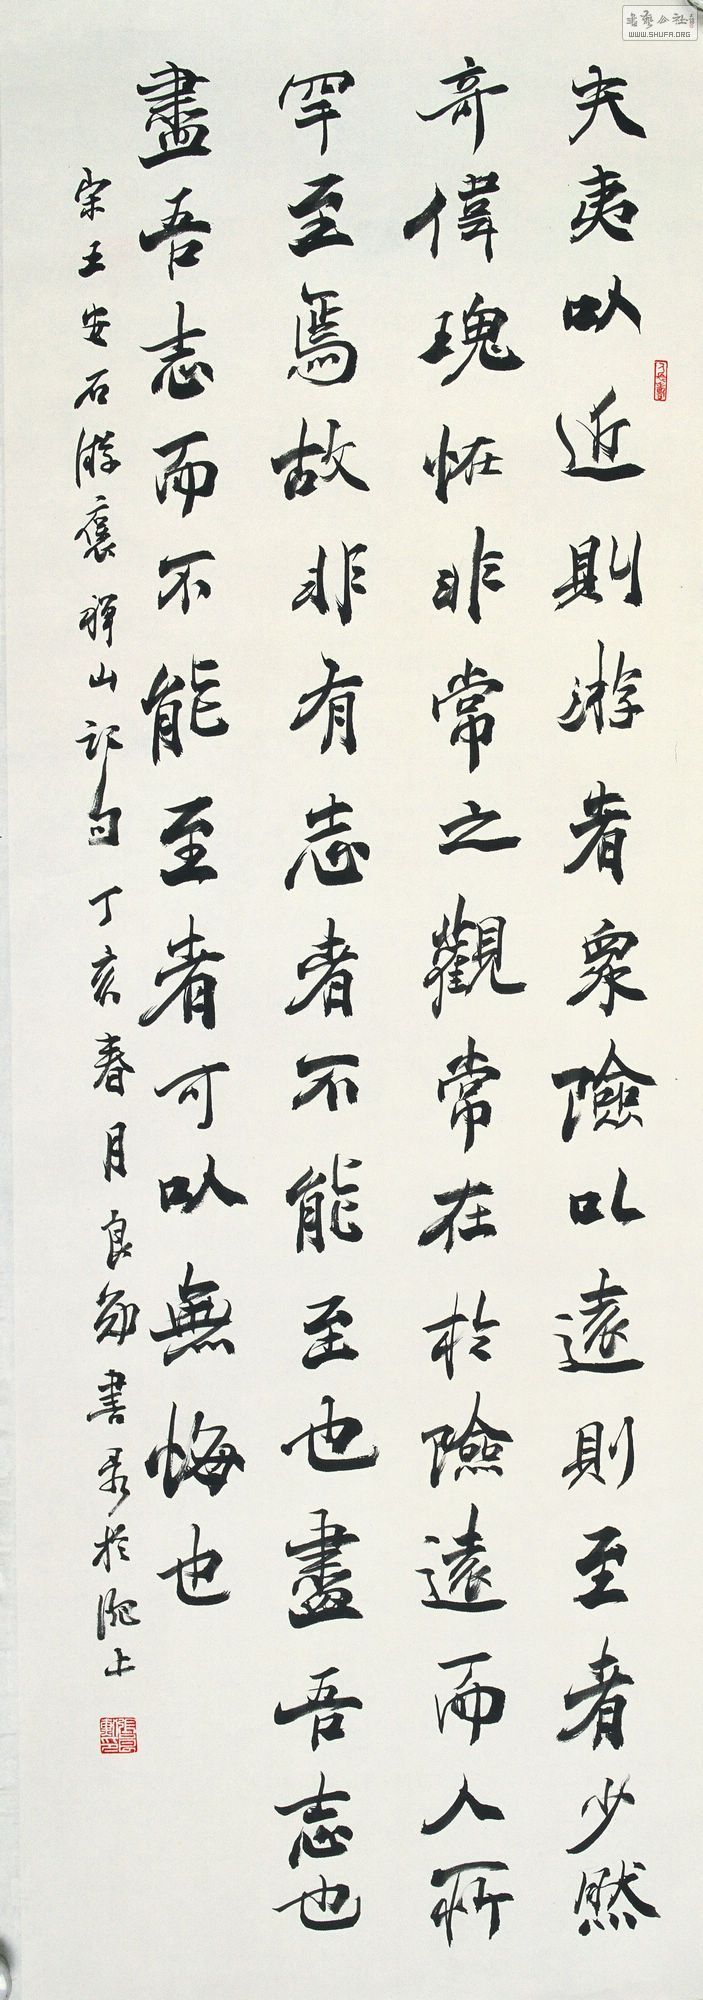 夫夷以近則游者眾險以遠則至者少然
奇偉瑰怪非常之觀常在於險遠而人所
罕至焉故非有志者不能至也盡吾志也
盡吾志而不能至者可以無悔也
宋王安石游褒禪山記句丁亥春月良勛書於淝上
書藝公社
WWW.SHUFA.ORG